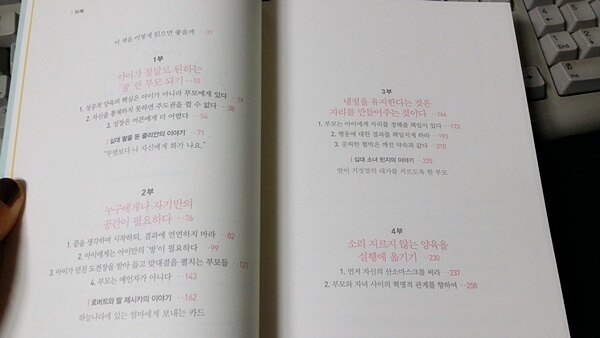 차례
이 책을 어떻게 읽으면 좋을까 07
1부
아이가 정말로 원하는
'쿨'한 부모 되기 ··10
1. 성공적 양육의 핵심은 아이가 아니라 부모에게 있다 ··19
2. 자신을 통제하지 못하면 주도권을 쥘 수 없다 ··38
3. 성장은 어른에게 더 어렵다 ··54
| 십대 딸을 둔 줄리안의 이야기 ··71
"무엇보다 나 자신에게 화가 나요."
2부
누구에게나 자기만의
공간이 필요하다 ··76
1. 끝을 생각하며 시작하되, 결과에 연연하지 마라 ··82
2. 아이에게는 아이만의 '방'이 필요하다 ··99
3. 아이가 던진 도전장을 받아 들고 맞대결을 펼치는 부모들 ··121
4. 부모는 예언자가 아니다 ··143
| 로버트와 딸 제시카의 이야기 ··162
하늘나라에 있는 엄마에게 보내는 카드
3부
냉정을 유지한다는 것은
자리를 만들어주는 것이다 ··166
1. 부모는 아이에게 자리를 정해줄 책임이 있다 ··173
2. 행동에 대한 결과를 책임지게 하라 ··193
3. 공허한 협박은 깨진 약속과 같다 ··210
| 십대 소녀 린지의 이야기 ··225
딸이 거짓말의 대가를 치르도록 한 부모
4부
소리 지르지 않는 양육을
실행에 옮기기 ··230
1. 먼저 자신의 산소마스크를 써라 ··237
2. 부모와 자녀 사이의 혁명적 관계를 향하여 ··258
Enter
1
End
0
Ins